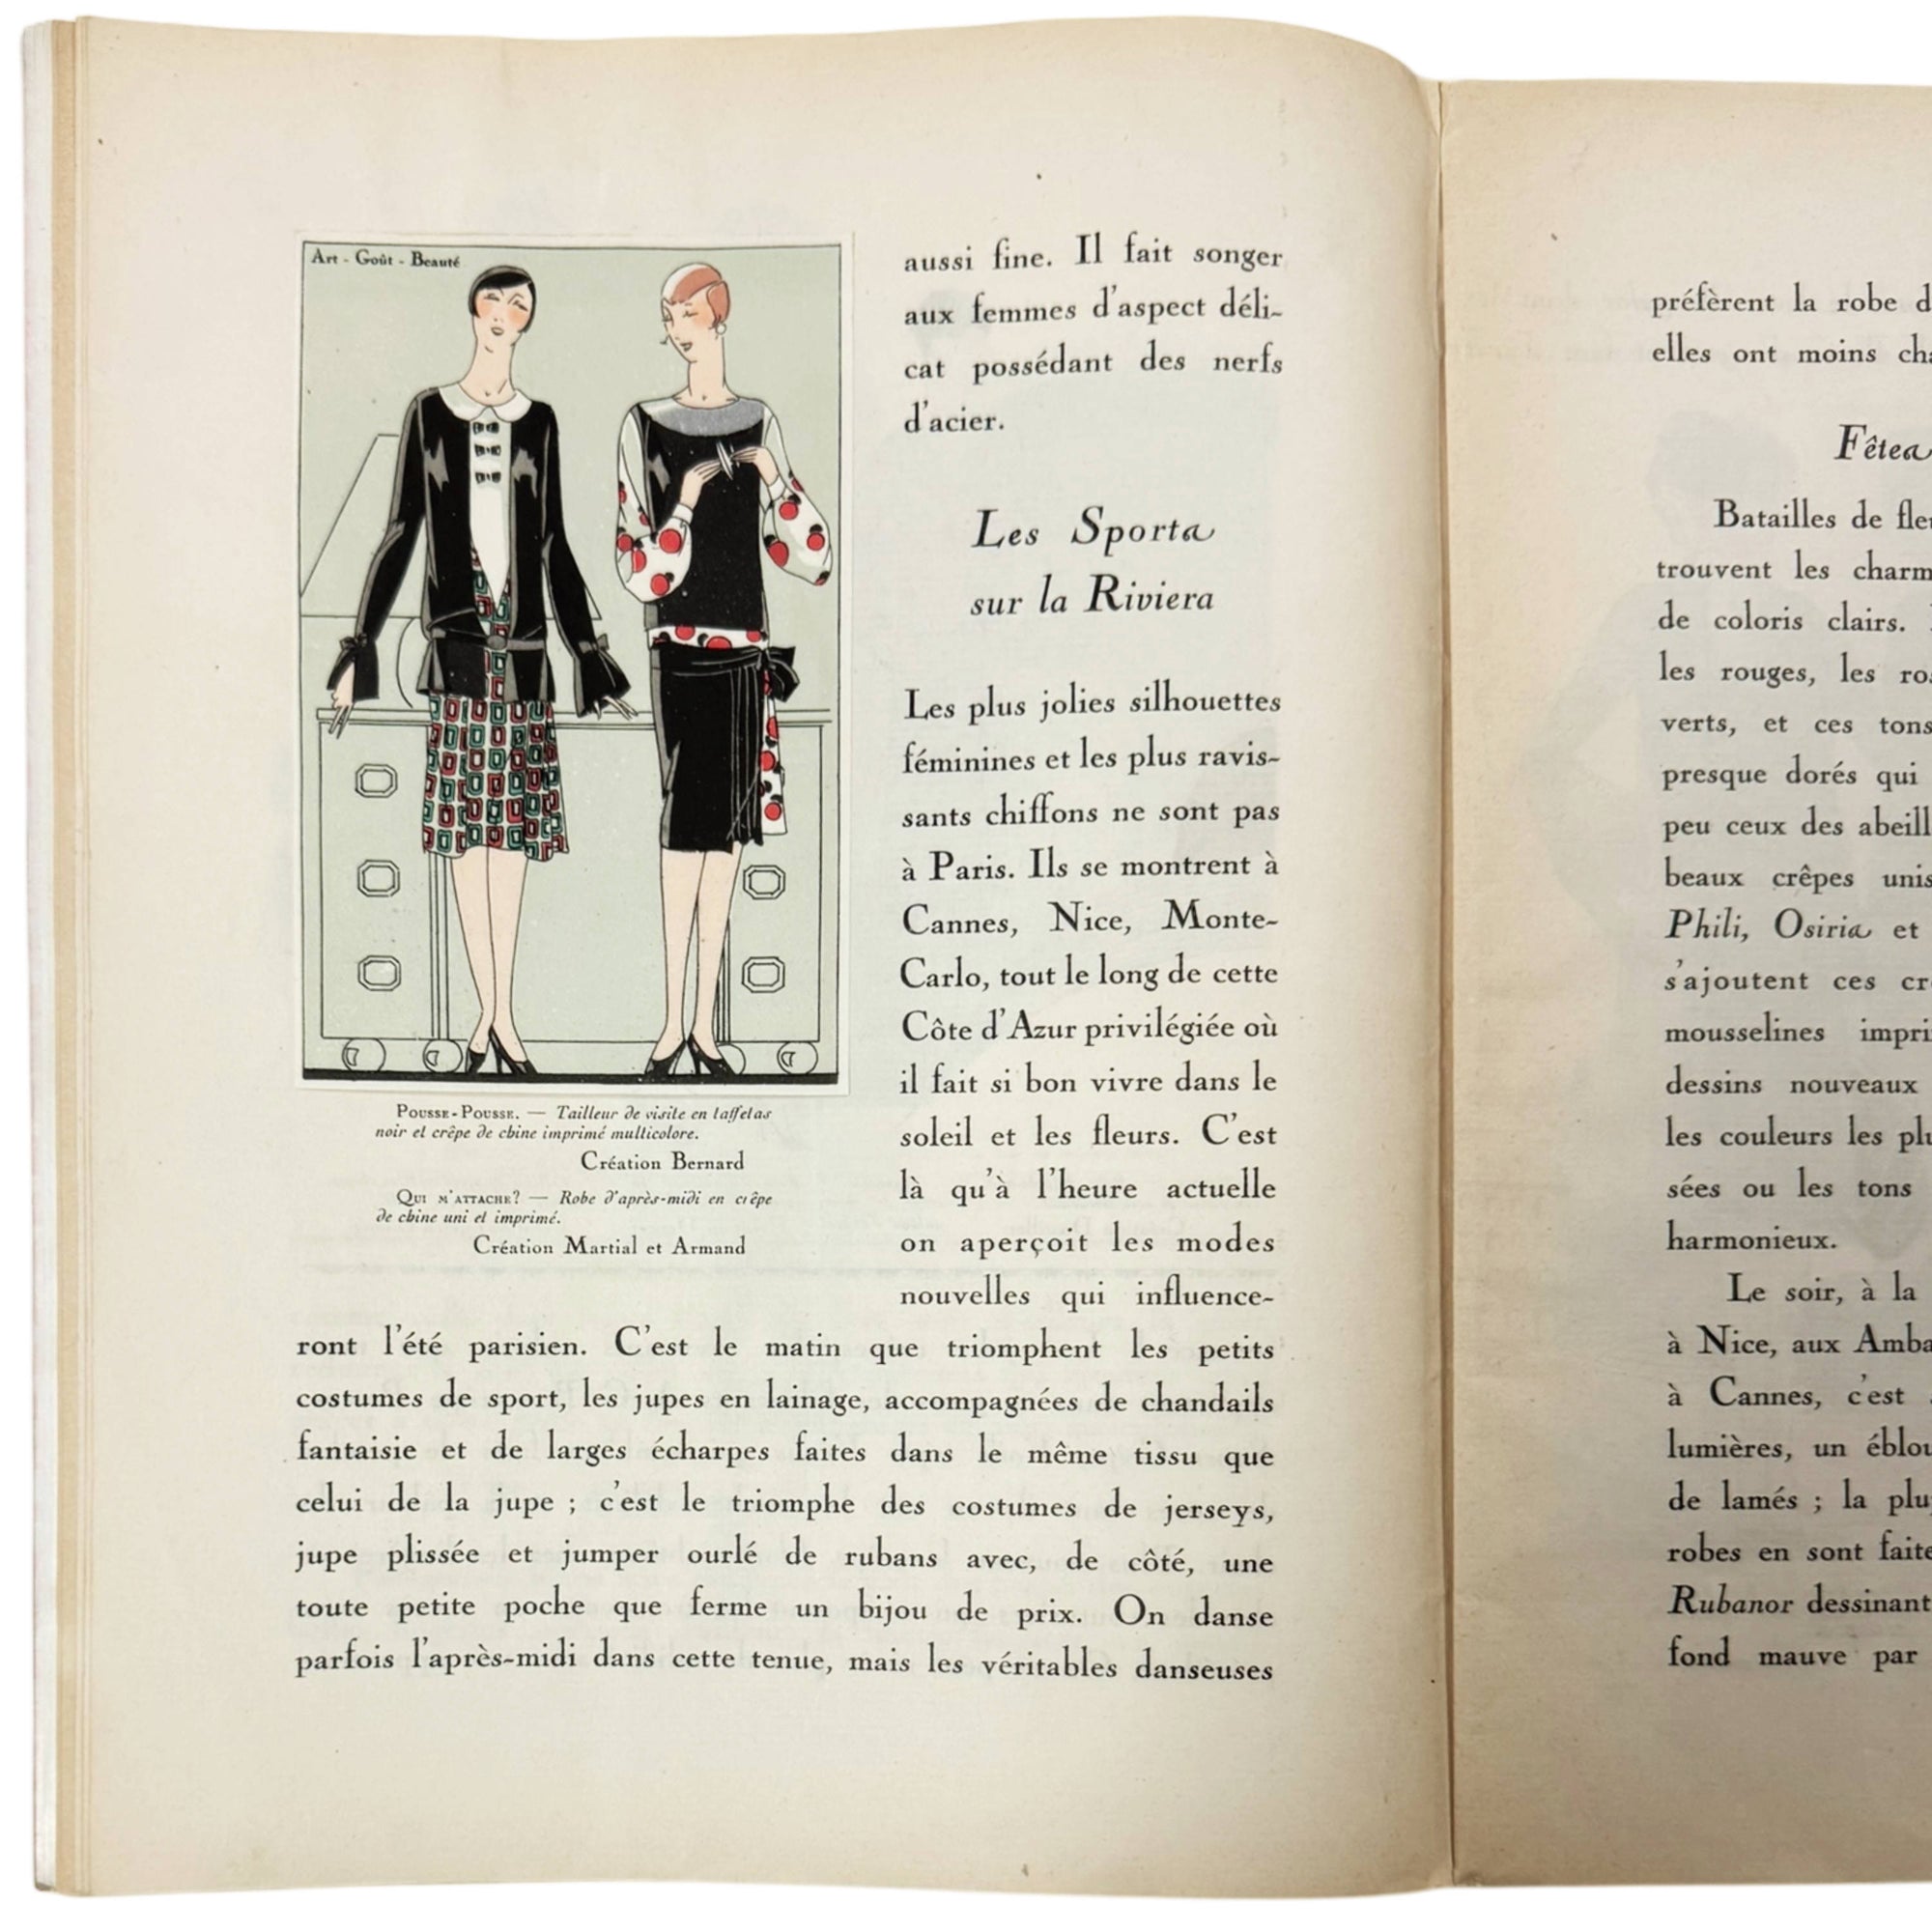 Art - Goût - Beauté
POUSSE-POUSSE. — Tailleur de visite en taffetas
noir et crêpe de chine imprimé multicolore.
Création Bernard
QUI M'ATTACHE? — Robe d'après-midi en crêpe
de chine uni et imprimé.
Création Martial et Armand
aussi fine. Il fait songer
aux femmes d'aspect déli-
cat possédant des nerfs
d'acier.
Les Sports
sur la Riviera
Les plus jolies silhouettes
féminines et les plus ravis-
sants chiffons ne sont pas
à Paris. Ils se montrent à
Cannes, Nice, Monte-
Carlo, tout le long de cette
Côte d'Azur privilégiée où
il fait si bon vivre dans le
soleil et les fleurs. C'est
là qu'à l'heure actuelle
on aperçoit les modes
nouvelles qui influence-
ront l'été parisien. C'est le matin que triomphent les petits
costumes de sport, les jupes en lainage, accompagnées de chandails
fantaisie et de larges écharpes faites dans le même tissu que
celui de la jupe ; c'est le triomphe des costumes de jerseys,
jupe plissée et jumper ourlé de rubans avec, de côté, une
toute petite poche que ferme un bijou de prix. On danse
parfois l'après-midi dans cette tenue, mais les véritables danseuses
préfèrent la robe
elles ont moins
Fêtes
Batailles de
trouvent les
de coloris clairs.
les rouges, les
verts, et ces tons
presque dorés qui
peu ceux des
beaux crêpes unis
Phili, Osiris et
s'ajoutent ces
mousselines
dessins nouveaux
les couleurs les
sées ou les tons
harmonieux.
Le soir, à la
à Nice, aux
à Cannes, c'est
lumières, un
de lamés ; la
robes en sont
Rubanor dessinant
fond mauve par